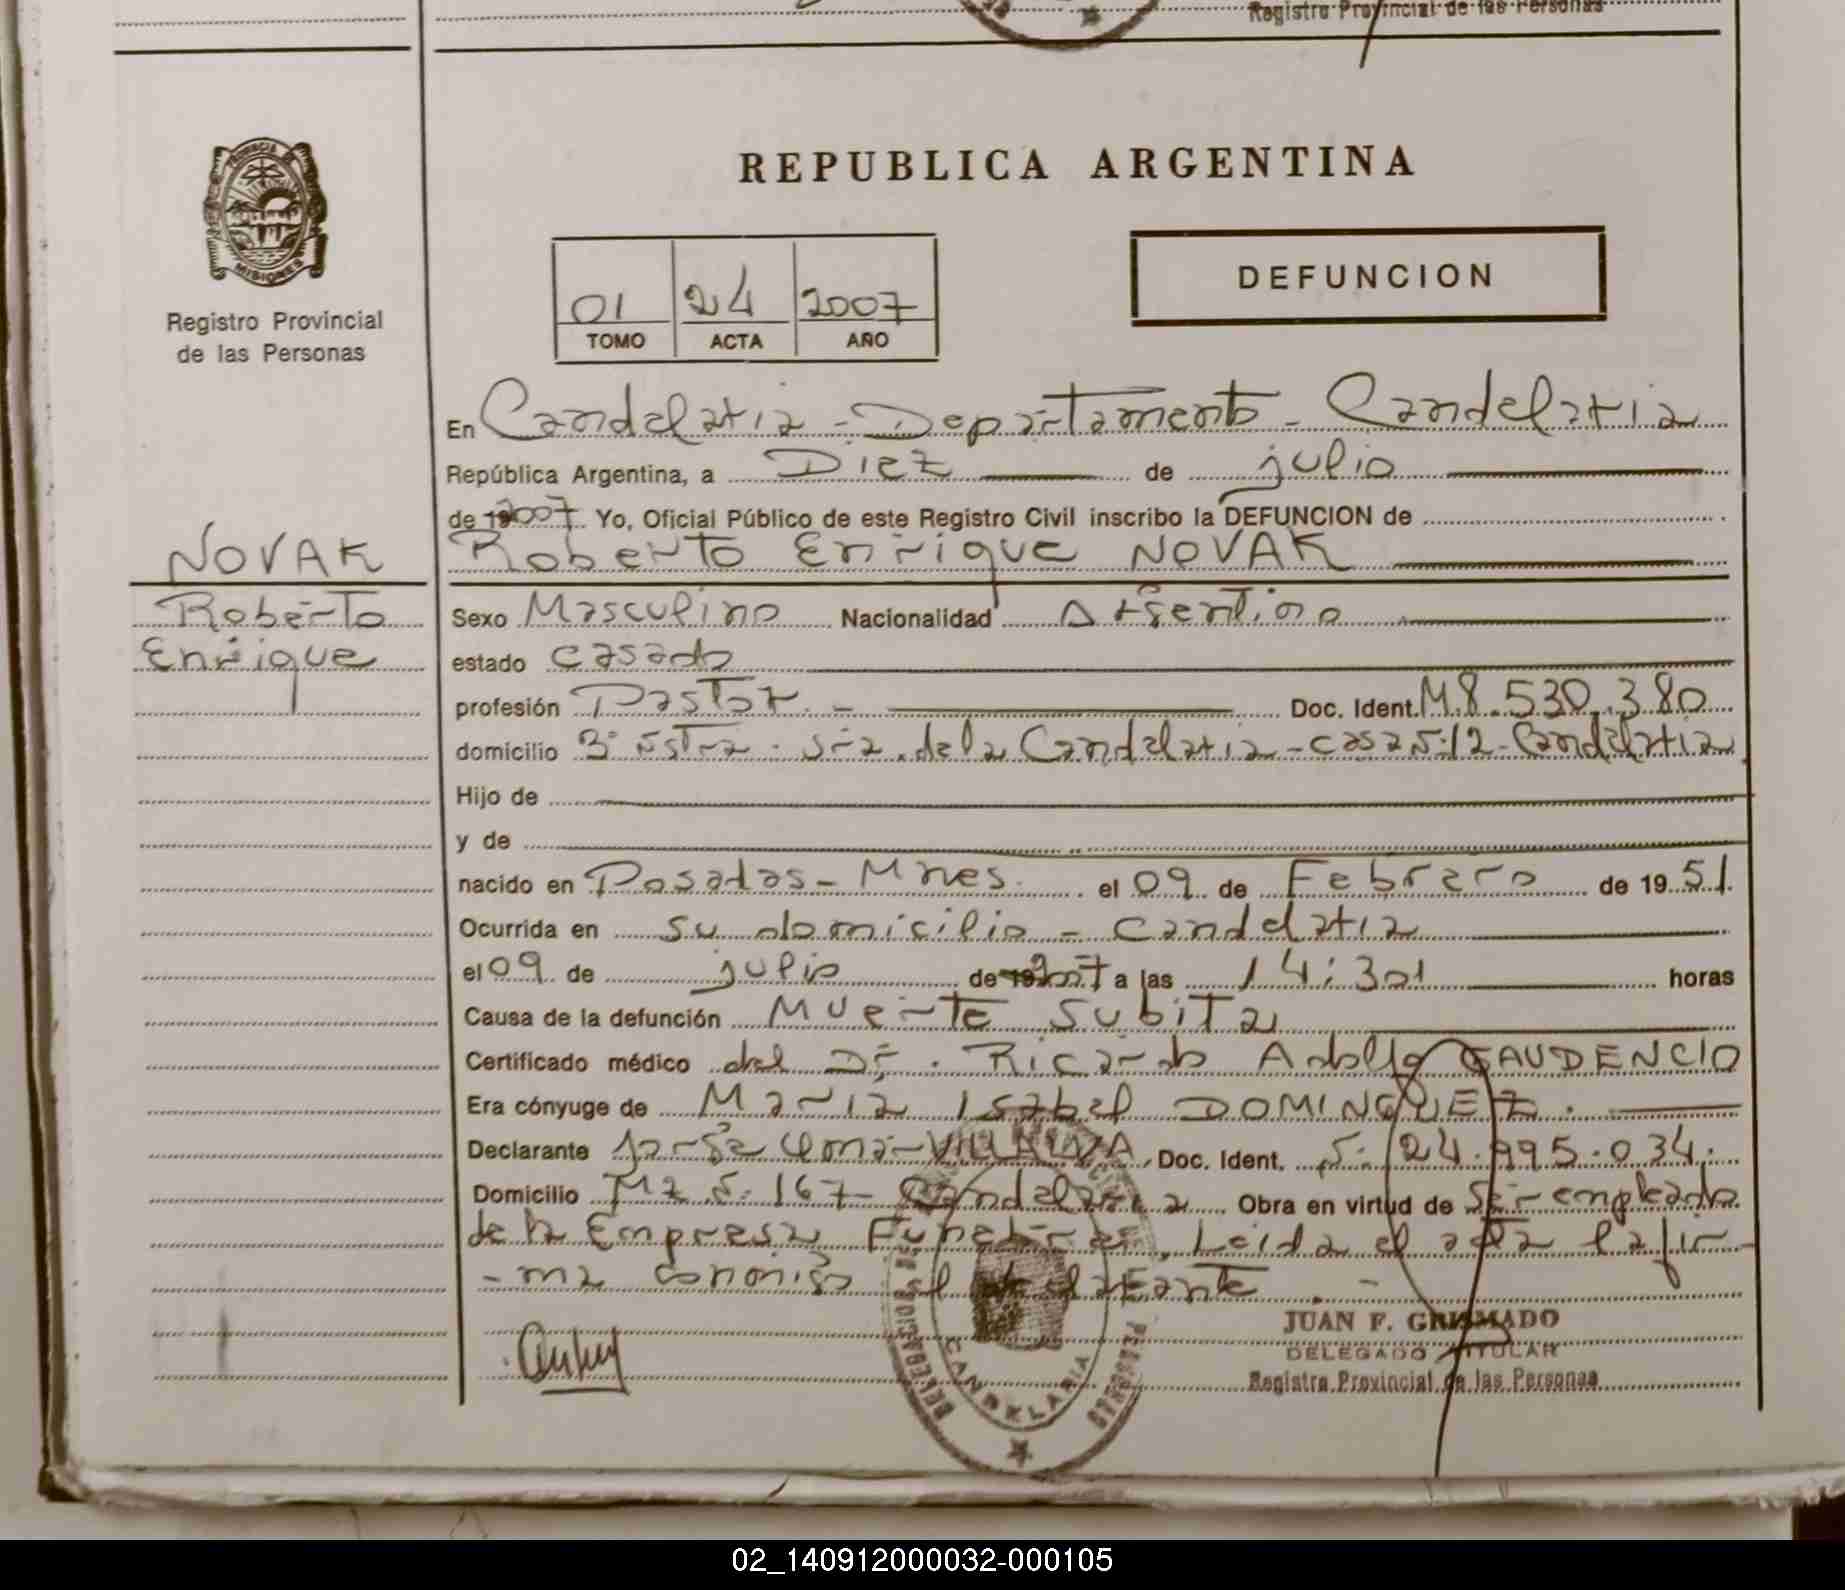 Registro Provincial de las Personas
PROVINCIA DE
MISIONES
Registro Provincial
de las Personas
REPUBLICA ARGENTINA
01 24 2007
TOMO ACTA AÑO
DEFUNCION
En Candelaria - Departamento - Candelaria
República Argentina, a Diez de julio
de 2007 Yo, Oficial Público de este Registro Civil inscribo la DEFUNCION de
NOVAK
Roberto Enrique NOVAK
Roberto
Sexo Masculino Nacionalidad Argentino
Enrique
estado casado
profesión Pastor. - Doc. Ident. M8.530.380
domicilio Sra. de la Candelaria - casa Nº 12 - Candelaria
Hijo de
y de
nacido en Posadas - Mnes. el 09 de Febrero de 1951.
Ocurrida en su domicilio - Candelaria
el 09 de julio de 2007 a las 14:30 horas
Causa de la defunción Muerte Subita
Certificado médico del Dr. Ricardo Adolfo GAUDENCIO
Era cónyuge de Maria Isabel DOMINGUEZ.
Declarante Jorge Omar VILLALVA, Doc. Ident. 24.995.034.
Domicilio Mz Nº 167 - Candelaria Obra en virtud de Ser empleado
de la Empresa Funebre. Leida el acta la fir-
-ma conmigo el declarante -
JUAN F. GRISMADO
DELEGADO TITULAR
Registro Provincial de las Personas
CANDELARIA
02_140912000032-000105